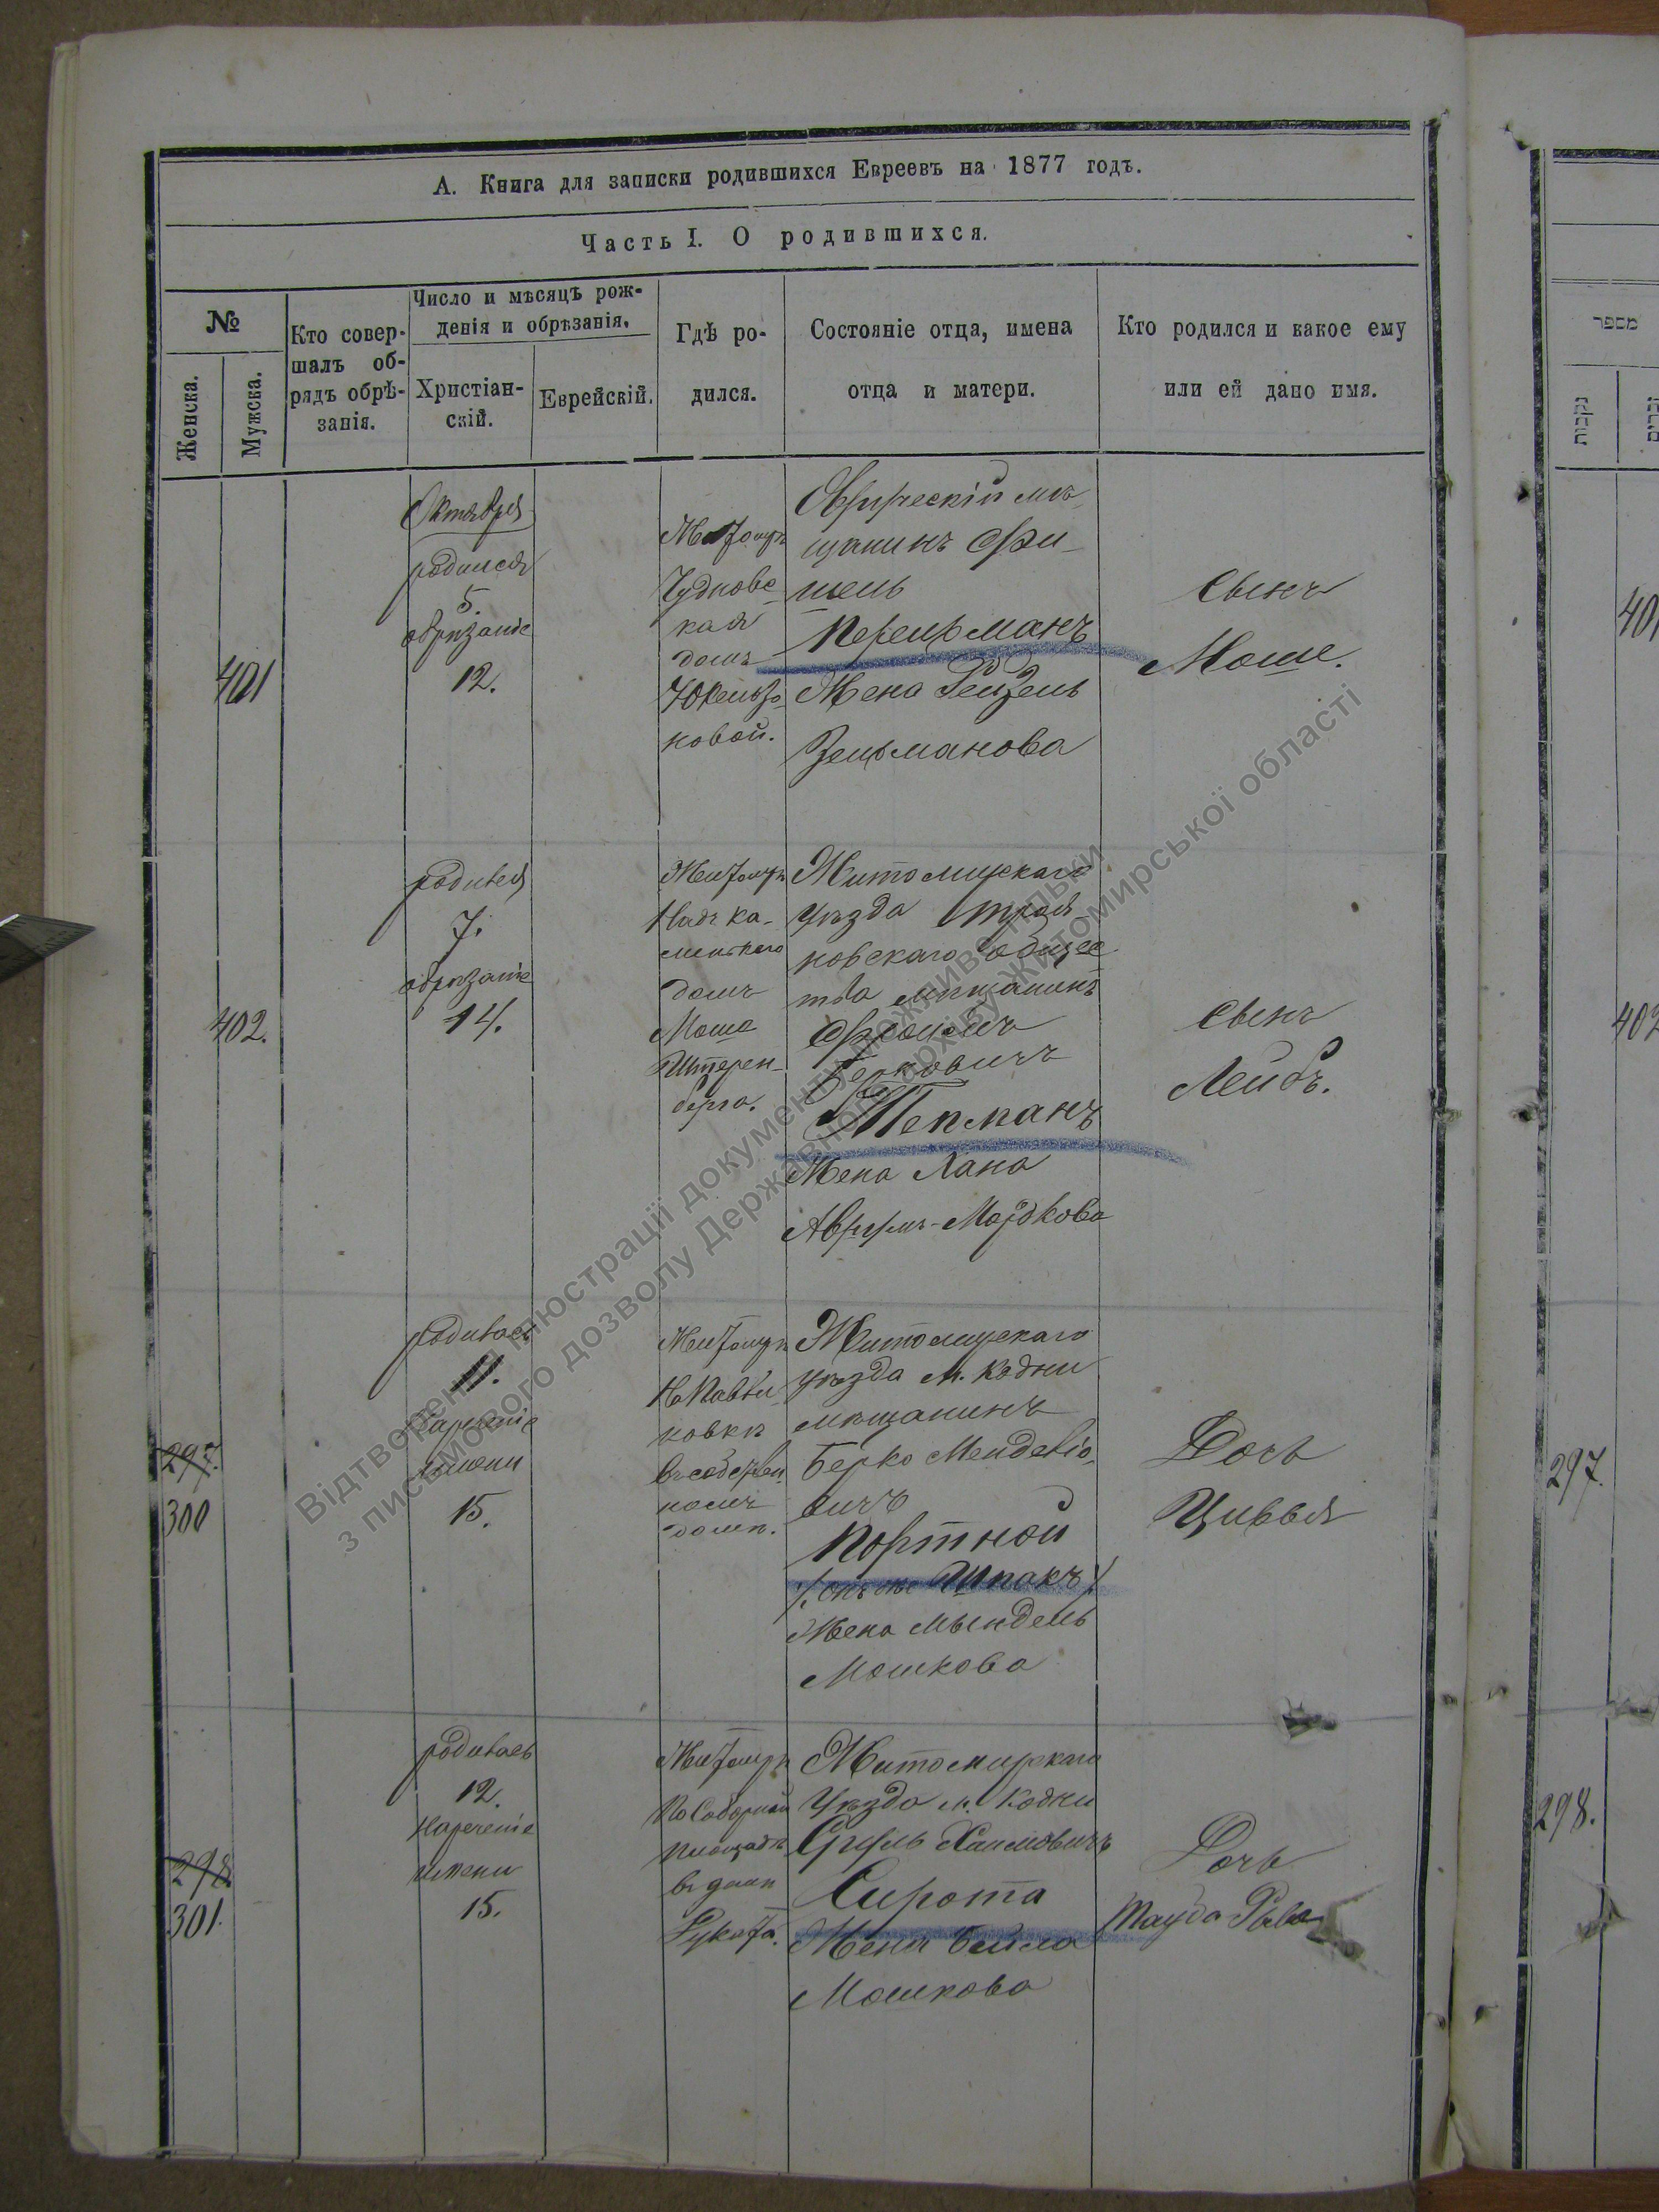 А. Книга для записки родившихся Евреевъ на 1877 годъ.
Часть I. О родившихся.
№
Женска.
Мужска.
Кто совер-
шалъ об-
рядъ обрѣ-
занія.
Число и мѣсяцъ рож-
денія и обрѣзанія.
Христіан-
скій.
Еврейскій.
Гдѣ ро-
дился.
Состояніе отца, имена
отца и матери.
Кто родился и какое ему
или ей дано имя.
401
Октября
родился
5.
обрѣзаніе
12.
Чудновс-
кая
домъ
новой.
мѣ-
щанинъ Фи-
шель
Перельманъ
Жена Рейзель
Зельманова
сынъ
Моше.
402.
родился
7.
обрѣзаніе
14.
Житомиръ
домъ
Моше
Штерен-
берга.
Житомирскаго
уѣзда Троя-
новскаго общес-
тва мѣщанинъ
Фроимъ
Берковичъ
Тепманъ
Жена Хана
Аврумъ-Мордкова
сынъ
Лейбъ.
297.
300
родилась
11.
нареченіе
имени
15.
Житомиръ
На Павли-
ковкѣ
въ собствен-
номъ
домѣ.
Житомирскаго
уѣзда м. Кодни
мѣщанинъ
Берко Менделіо-
вичъ
Портной
/: онъ же Шпакъ :/
Жена Мындель
Мошкова
Дочь
Цивья
298
301.
родилась
12.
Нареченіе
имени
15.
Житомиръ
По Соборной
площадѣ
въ домѣ
Житомирскаго
Уѣзда м. Кодни
Сруль Хаимовичъ
Сирота
Жена Бейла
Мошкова
Дочь
מספר
נקבות
401
402
297.
298.
Відтворення ілюстрації документу можливе тільки
з письмового дозволу Державного архіву Житомирської області